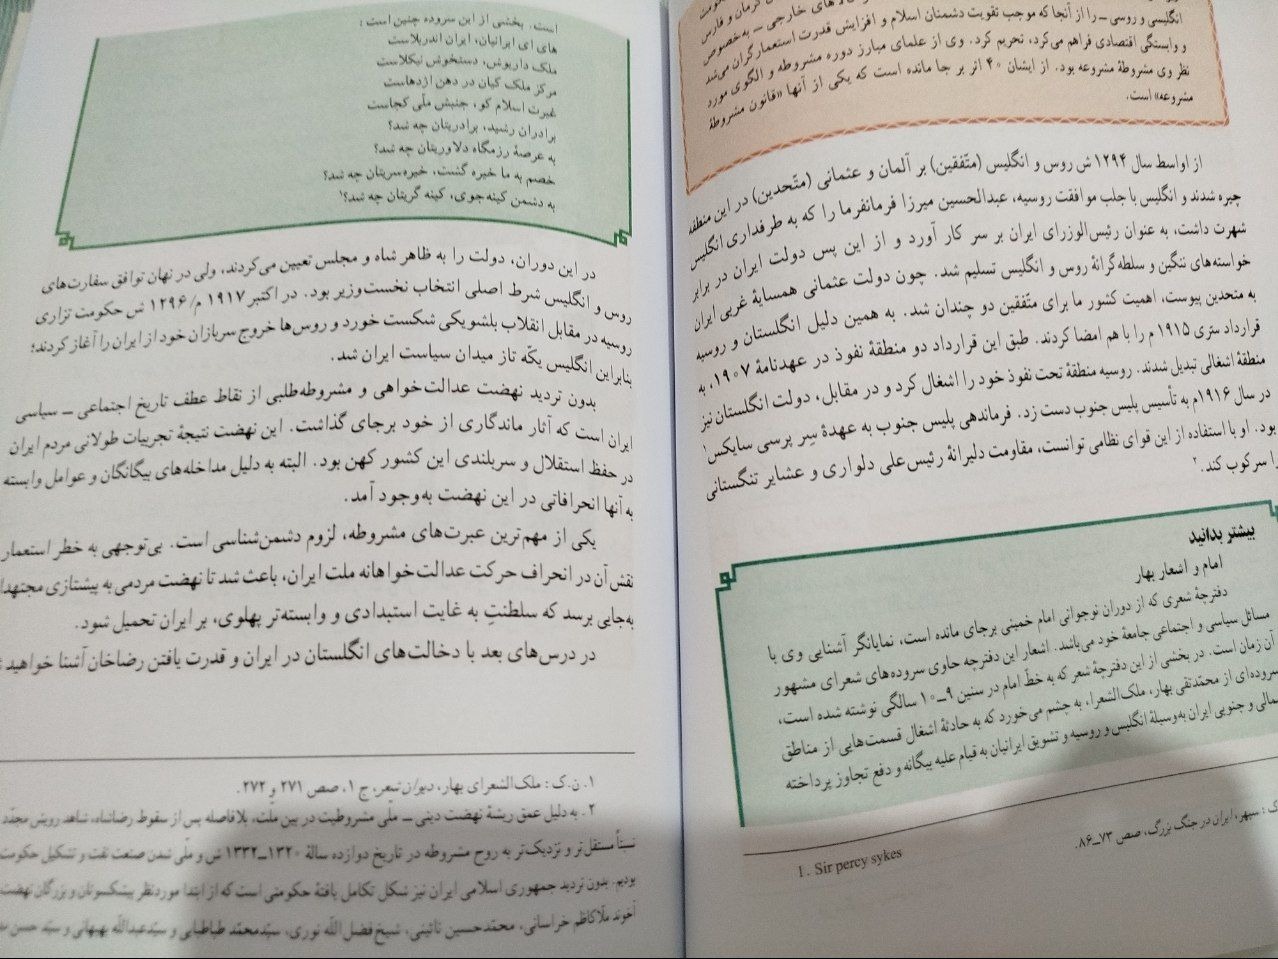 انگلیسی و روسی ــ را از آنجا که موجب تقویت دشمنان اسلام و افزایش قدرت استعمارگران می‌شد
و وابستگی اقتصادی فراهم می‌کرد، تحریم کرد. وی از علمای مبارز دوره مشروطه و الگوی مورد
نظر وی مشروطهٔ مشروعه بود. از ایشان ۴۰ اثر بر جا مانده است که یکی از آنها «قانون مشروطهٔ
مشروعه» است.
از اواسط سال ۱۲۹۴ ش روس و انگلیس (متّفقین) بر آلمان و عثمانی (متّحدین) در این منطقه
چیره شدند و انگلیس با جلب موافقت روسیه، عبدالحسین میرزا فرمانفرما را که به طرفداری انگلیس
شهرت داشت، به عنوان رئیس‌الوزرای ایران بر سر کار آورد و از این پس دولت ایران در برابر
خواسته‌های ننگین و سلطه‌گرانهٔ روس و انگلیس تسلیم شد. چون دولت عثمانی همسایهٔ غربی ایران
به متحدین پیوست، اهمیت کشور ما برای متّفقین دو چندان شد. به همین دلیل انگلستان و روسیه
قرارداد سری ۱۹۱۵ م را با هم امضا کردند. طبق این قرارداد دو منطقهٔ نفوذ در عهدنامهٔ ۱۹۰۷، به
منطقهٔ اشغالی تبدیل شدند. روسیه منطقهٔ تحت نفوذ خود را اشغال کرد و در مقابل، دولت انگلستان نیز
در سال ۱۹۱۶م به تأسیس پلیس جنوب دست زد. فرماندهی پلیس جنوب به عهدهٔ سِر پرسی سایکس۱
بود. او با استفاده از این قوای نظامی توانست، مقاومت دلیرانهٔ رئیس‌علی دلواری و عشایر تنگستانی
را سرکوب کند.۲
بیشتر بدانید
امام و اشعار بهار
دفترچهٔ شعری که از دوران نوجوانی امام خمینی برجای مانده است، نمایانگر آشنایی وی با
مسائل سیاسی و اجتماعی جامعهٔ خود می‌باشد. اشعار این دفترچه حاوی سروده‌های شعرای مشهور
آن زمان است. در بخشی از این دفترچهٔ شعر که به خطّ امام در سنین ۹ــ۱۰ سالگی نوشته شده است،
سروده‌ای از محمّدتقی بهار، ملک‌الشعرا، به چشم می‌خورد که به حادثهٔ اشغال قسمت‌هایی از مناطق
شمالی و جنوبی ایران به‌وسیلهٔ انگلیس و روسیه و تشویق ایرانیان به قیام علیه بیگانه و دفع تجاوز پرداخته
1. Sir percy sykes
ک : سپهر، ایران در جنگ بزرگ، صص ۷۳ــ۸۶.
است. بخشی از این سروده چنین است :
های ای ایرانیان، ایران اندربلاست
ملک داریوش، دستخوش نیکلاست
مرکز ملک کیان در دهن اژدهاست
غیرت اسلام کو، جنبش ملّی کجاست
برادران رشید، برادریتان چه شد؟
به عرصهٔ رزمگاه دلاوریتان چه شد؟
خصم به ما خیره گشت، خیره‌سریتان چه شد؟
به دشمن کینه‌جوی، کینه گریتان چه شد؟۱
در این دوران، دولت را به ظاهر شاه و مجلس تعیین می‌کردند، ولی در نهان توافق سفارت‌های
روس و انگلیس شرط اصلی انتخاب نخست‌وزیر بود. در اکتبر ۱۹۱۷ م/ ۱۲۹۶ ش حکومت تزاری
روسیه در مقابل انقلاب بلشویکی شکست خورد و روس‌ها خروج سربازان خود از ایران را آغاز کردند؛
بنابراین انگلیس یکّه تاز میدان سیاست ایران شد.
بدون تردید نهضت عدالت‌خواهی و مشروطه‌طلبی از نقاط عطف تاریخ اجتماعی ــ سیاسی
ایران است که آثار ماندگاری از خود برجای گذاشت. این نهضت نتیجهٔ تجربیات طولانی مردم ایران
در حفظ استقلال و سربلندی این کشور کهن بود. البته به دلیل مداخله‌های بیگانگان و عوامل وابسته
به آنها انحرافاتی در این نهضت به‌وجود آمد.
یکی از مهم‌ترین عبرت‌های مشروطه، لزوم دشمن‌شناسی است. بی‌توجهی به خطر استعمار
نقش آن در انحراف حرکت عدالت‌خواهانه ملت ایران، باعث شد تا نهضت مردمی به پیشتازی مجتهدا
به‌جایی برسد که سلطنتِ به غایت استبدادی و وابسته‌تر پهلوی، بر ایران تحمیل شود.
در درس‌های بعد با دخالت‌های انگلستان در ایران و قدرت یافتن رضاخان آشنا خواهید
۱. ن.ک : ملک‌الشعرای بهار، دیوان شعر، ج ۱، صص ۲۷۱ و ۲۷۲.
۲. به دلیل عمق ریشهٔ نهضت دینی ــ ملّی مشروطیت در بین ملت، بلافاصله پس از سقوط رضاشاه، شاهد رویش مجدّد
نسبتاً مستقل‌تر و نزدیک‌تر به روح مشروطه در تاریخ دوازده سالهٔ ۱۳۲۰ــ۱۳۳۲ ش و ملّی شدن صنعت نفت و تشکیل حکومت
بودیم. بدون تردید جمهوری اسلامی ایران نیز شکل تکامل یافتهٔ حکومتی است که از ابتدا موردنظر پیشکسوتان و بزرگان نهضت
آخوند ملّاکاظم خراسانی، محمّدحسین نائینی، شیخ فضل‌اللّه نوری، سیّدمحمّد طباطبایی و سیّدعبداللّه بهبهانی و سیّد حسن